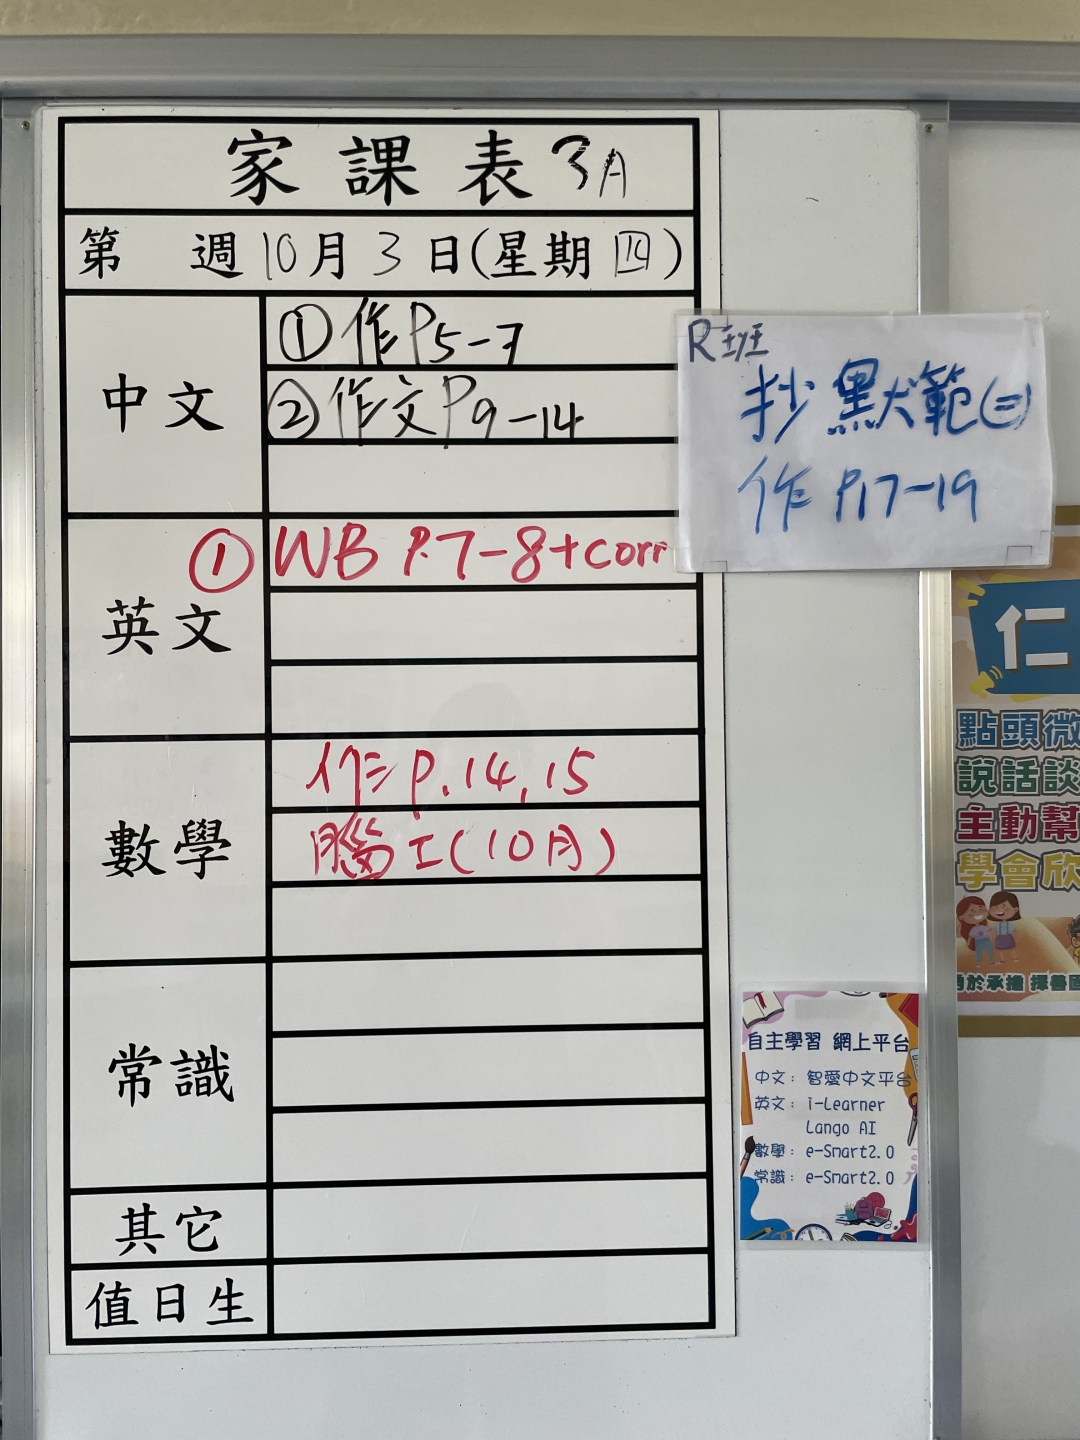 家課表 3A
第 週 10月3日(星期四)
中文
①作P5-7
②作文P9-14
R班
抄默範(二)
作 P.17-19
英文
①WB P.7-8+corr
數學
作 P.14,15
腦工(10月)
常識
其它
值日生
仁
點頭微
說話談
主動幫
學會欣
於承擔 擇善固
自主學習 網上平台
中文：智愛中文平台
英文：i-Learner
Lango AI
數學：e-Smart2.0
常識：e-Smart2.0